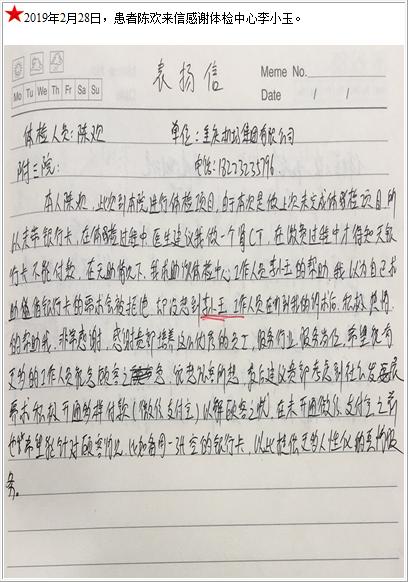 ★2019年2月28日，患者陈欢来信感谢体检中心李小玉。
表扬信
Memo No.
Mo Tu We Th Fr Sa Su
Date / /
体检人员：陈欢 单位：重庆机场集团有限公司
附三院： 电话：18223235796
本人陈欢，此次到本院进行体检项目，由于本次是做上次未完成体检项目，所
以未带银行卡，在体检过程中医生建议我做一个肾CT，在缴费过程中才得知无银
行卡不能付款，在无助情况下，我求助体检中心工作人员李小玉的帮助，我以为自己求
助借银行卡的要求会被拒绝，却没想到李小玉工作人员在听到我的诉求后，积极热情
的帮助我，非常感谢，感谢贵部培养这么优秀的员工，服务行业，服务岗位，希望能有
更多的工作人员能急顾客之急，忧患
需求积极开通多样付款（微信支付宝）以解顾客之忧，在未开通微信支付宝之前
也希望能针对顾客情况，比如备用一张空的银行卡，以此提供更多人性化的真情服
务。